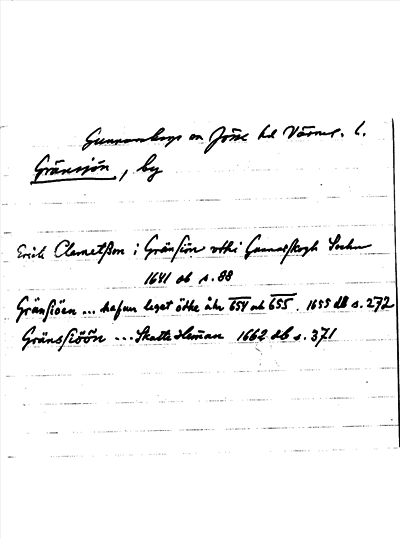 Gunnarskogs sn Jösse hd Värml. l.
Gränsjön, by
Erich Clemetßon i Gränsiön uthi Gunnarskogh Sochn
1641 ob s. 88
Gränsiöen ... hafun leget öde åhr 654 och 655. 1655 db s. 272
Gränssiöön ... Skatte Heman 1662 db s. 371